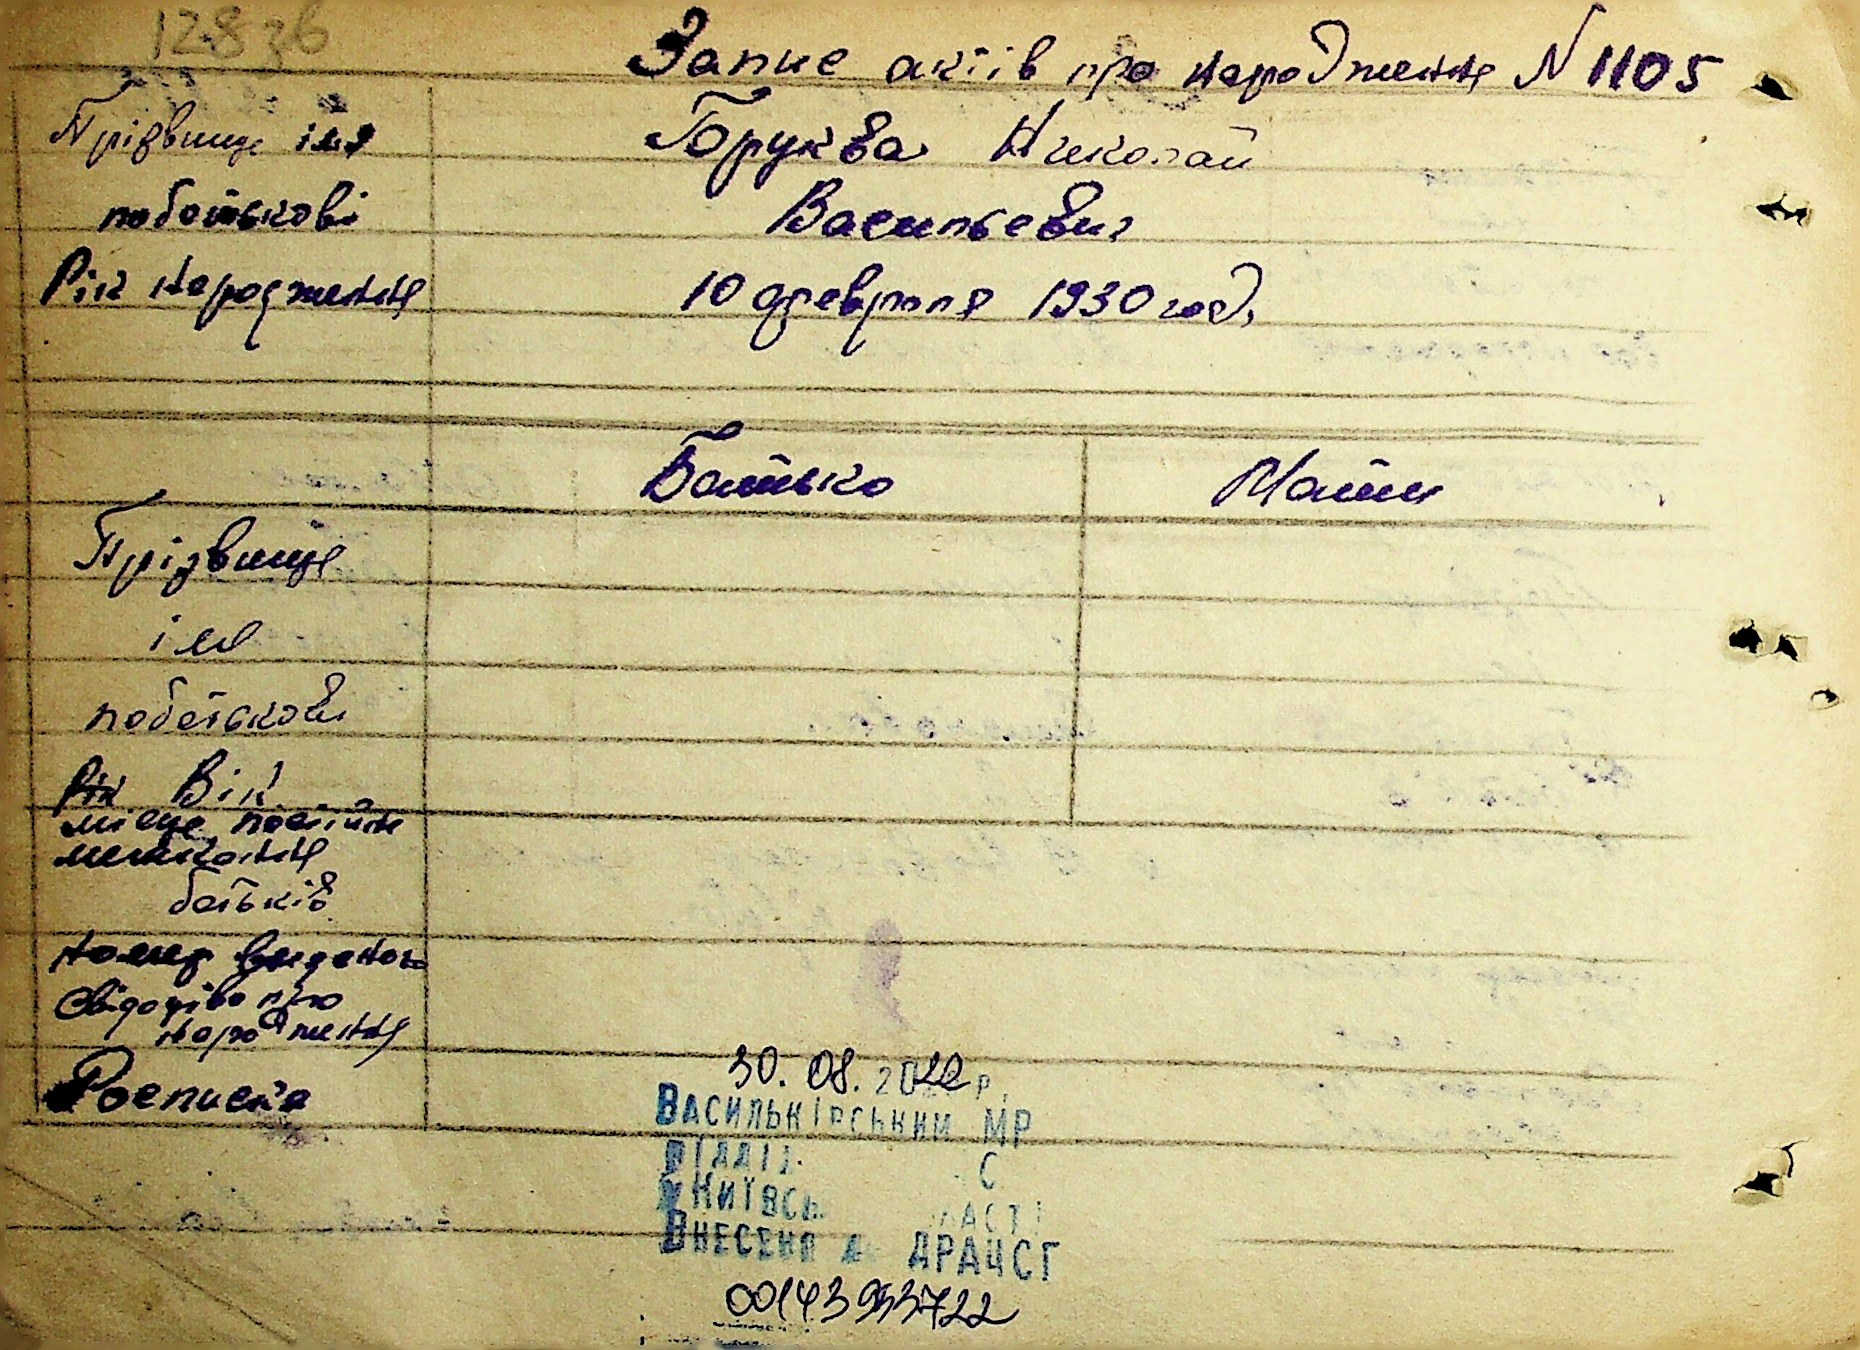 Запис актів про народження N 1105
Прізвище імя Горуква Николай
побатькові Васильевич
Рік народження 10 февраля 1930 год.
Батько Мати
Прізвище
імя
побатькові
Рік Вік
місце постійне
мешкання
батьків
номер виданого
свідоцтва про
народження
Росписка
30.08.2022 р.
ВАСИЛЬКІВСЬКИЙ МР
ВІДДІЛ С
У КИЇВСЬ ЛАСТІ
ВНЕСЕНО Д ДРАЦСГ
00143933722